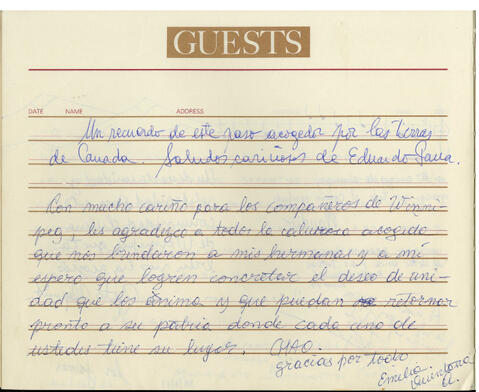 GUESTS
DATE NAME ADDRESS
Un recuerdo de este paso acogedor por las tierras
de Canada. Saludos cariñosos de Eduardo Parra.
Con mucho cariño para los compañeros de Winni-
peg, les agradezco a todos la calurosa acogida
que nos brindaron a mis hermanas y a mí
espero que logren concretar el deseo de uni-
dad que les anima y que puedan retornar
pronto a su patria donde cada uno de
ustedes tiene su lugar. CHAO.
gracias por todo
Emilia
Quintana